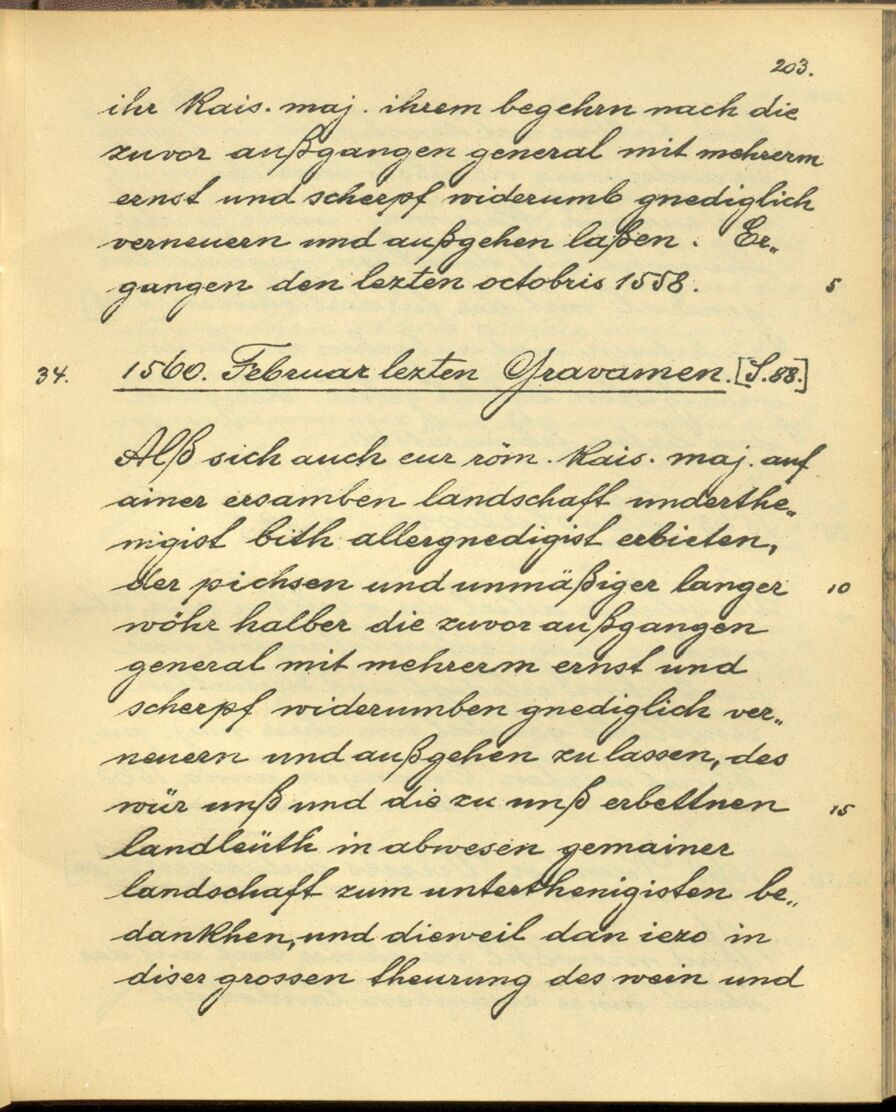 203.
ihr Kais. maj. ihrem begehrn nach die
zuvor außgangen general mit mehrerm
ernst und scherpf widerumb gnediglich
verneuern und außgehen laßen. Er„
gangen den lezten octobris 1558. 5
34. 1560. Februar lezten Gravamen. [S. 88.]
Alß sich auch eur röm. Kais. maj. auf
ainer ersamben landschaft underthe„
nigist bith allergnedigist erbieten,
der pichsen und unmäßiger langer 10
wöhr halber die zuvor außgangen
general mit mehrerm ernst und
scherpf widerumben gnediglich ver„
neuern und außgehen zu lassen, des
wür unß und die zu unß erbettnen 15
landleüth in abwesen gemainer
landschaft zum unterthenigisten be„
dankhen, und dieweil dan iezo in
diser grossen theurung des wein und